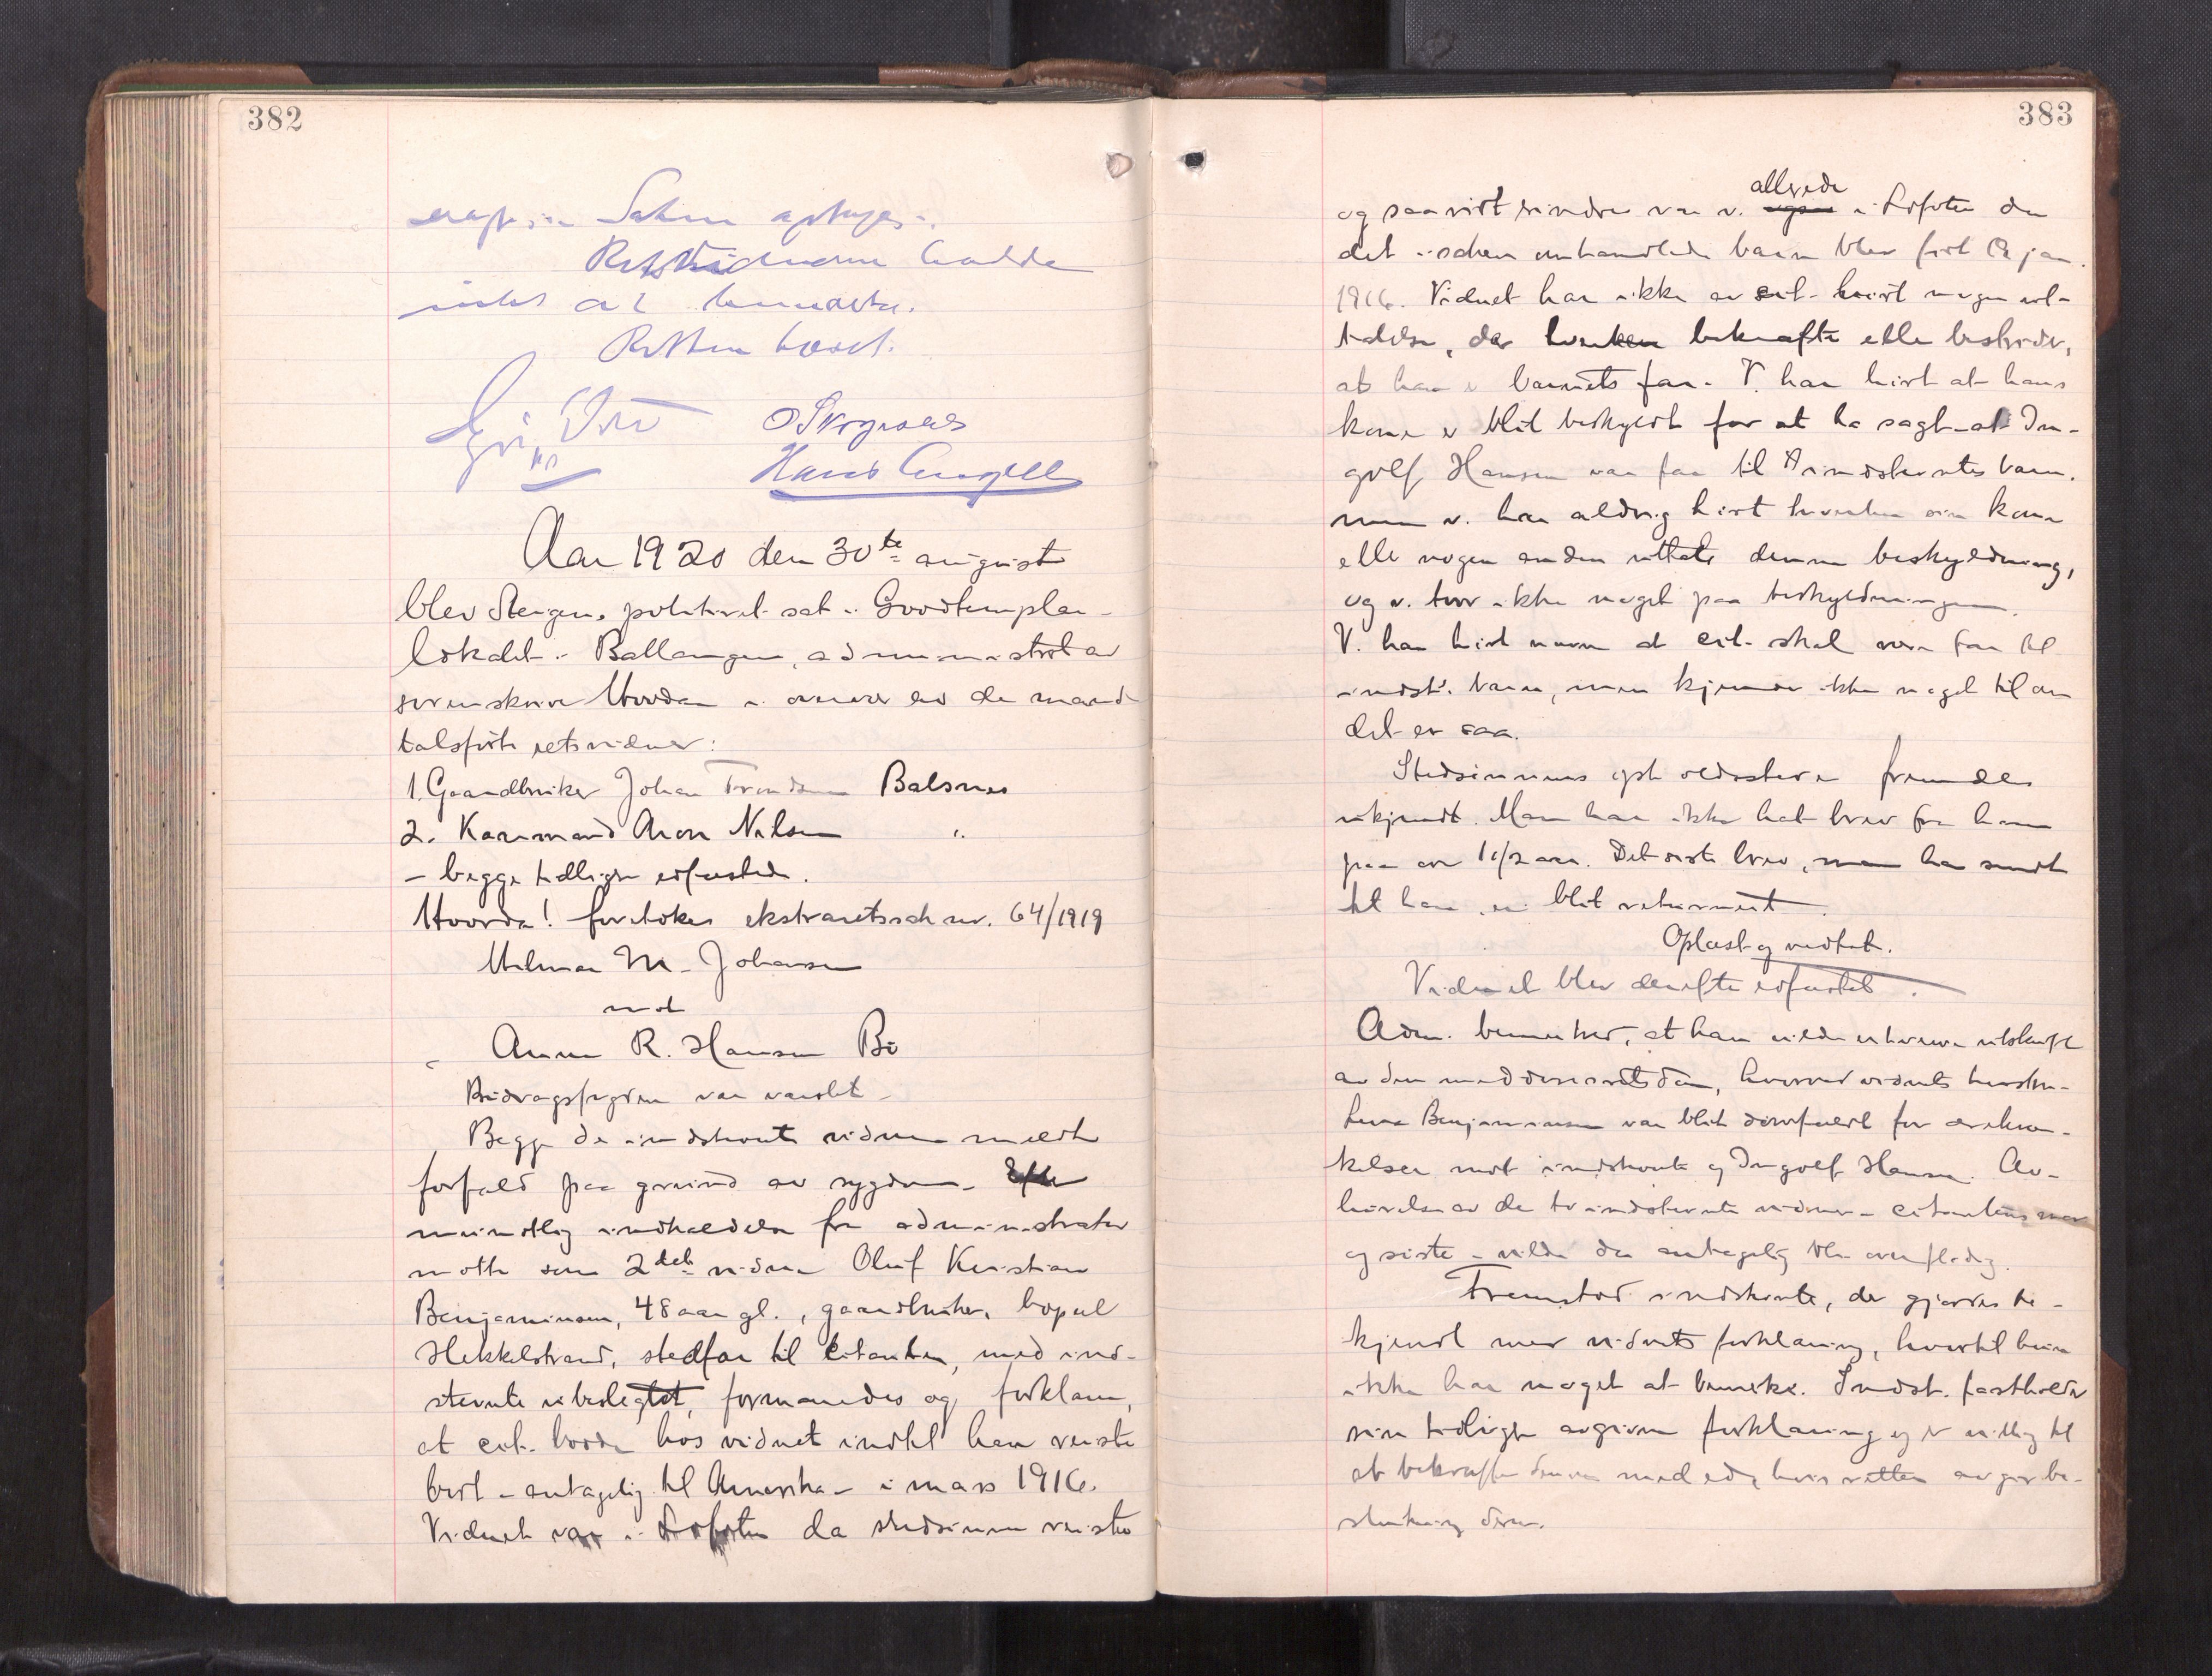 382
Saken optages.
Retsvidnerne hadde
intet at bemerke.
Retten hævet.
Hans Engell
Aar 1920 den 30te august
blev Steigens politiret sat i Goodtemplar-
lokalet i Ballangen, administrert av
sorenskriver Hvoslef i overvær av de mand-
talsførte retsvidner:
1. Gaardbruker Johan Trondsen Balsnes
2. Kaarmand Aron Nilsen "
- begge tidligere edfæstede.
Hvorda! foretokes ekstraretssak nr. 64/1919
Hilmar M. Johansen
mot
Anna R. Hansen Bø
Bidragsfogden var varslet -
Begge de indstevnte vidner meldte
forfald paa grund av sygdom. Efter
mundtlig indkaldelse fra administrator
møtte som 2det vidne Oluf Kristian
Benjaminsen, 48 aar gl., gaardbruker, bopæl
Hekkelstrand, stedfar til citanten, med ind-
stevnte ubeslegtet, formanedes og forklarer,
at cit. bodde hos vidnet indtil han reiste
bort - antagelig til Amerika - i mars 1916.
Vidnet var i Lofoten da stedsønnen reiste
383
allerede
og saavidt erindres var v. ogsaa i Lofoten da
det i saken omhandlede barn blev født jan.
1916. Vidnet har ikke av cit. hørt nogen ut-
talelse, der hverken bekræfter eller bestrider,
at han er barnets far. V. har hørt at hans
kone er blit beskyldt for at ha sagt at In-
golf Hansen var far til indstevntes barn.
men v. har aldrig hørt hverken sin kone
eller nogen anden uttale denne beskyldning,
og v. tror ikke noget paa beskyldningen.
V. har hørt nævne at cit. skal være far til
indst.s barn, men kjender ikke noget til om
det er saa.
Stedsønnens opholdssted er fremdeles
ukjendt. Man har ikke hat brev fra ham
paa over 1 1/2 aar. Det siste brev, man har sendt
til ham, er blit returnert.
Oplæst og vedtat.
Vidnet blev derefter edfæstet.
Adm. bemerket, at han vilde erhverve utskrift
av den meddomsretsdom, hvorved vidnets hustru
Benjaminsen var blit domfældt for ærekræn-
kelser mot indstevnte og Ingolf Hansen. Av-
hørelse av de to indstevnte vidner - citantens mor
og søster - vilde da antagelig bli overflødig.
Fremstod indstevnte, der gjordes be-
kjendt med vidnets forklaring, hvortil hun
ikke har noget at bemerke. Indst. fastholder
sin tidligere avgivne forklaring og er villig til
at bekræfte denne med ed, hvis retten avgir be-
slutning derom.